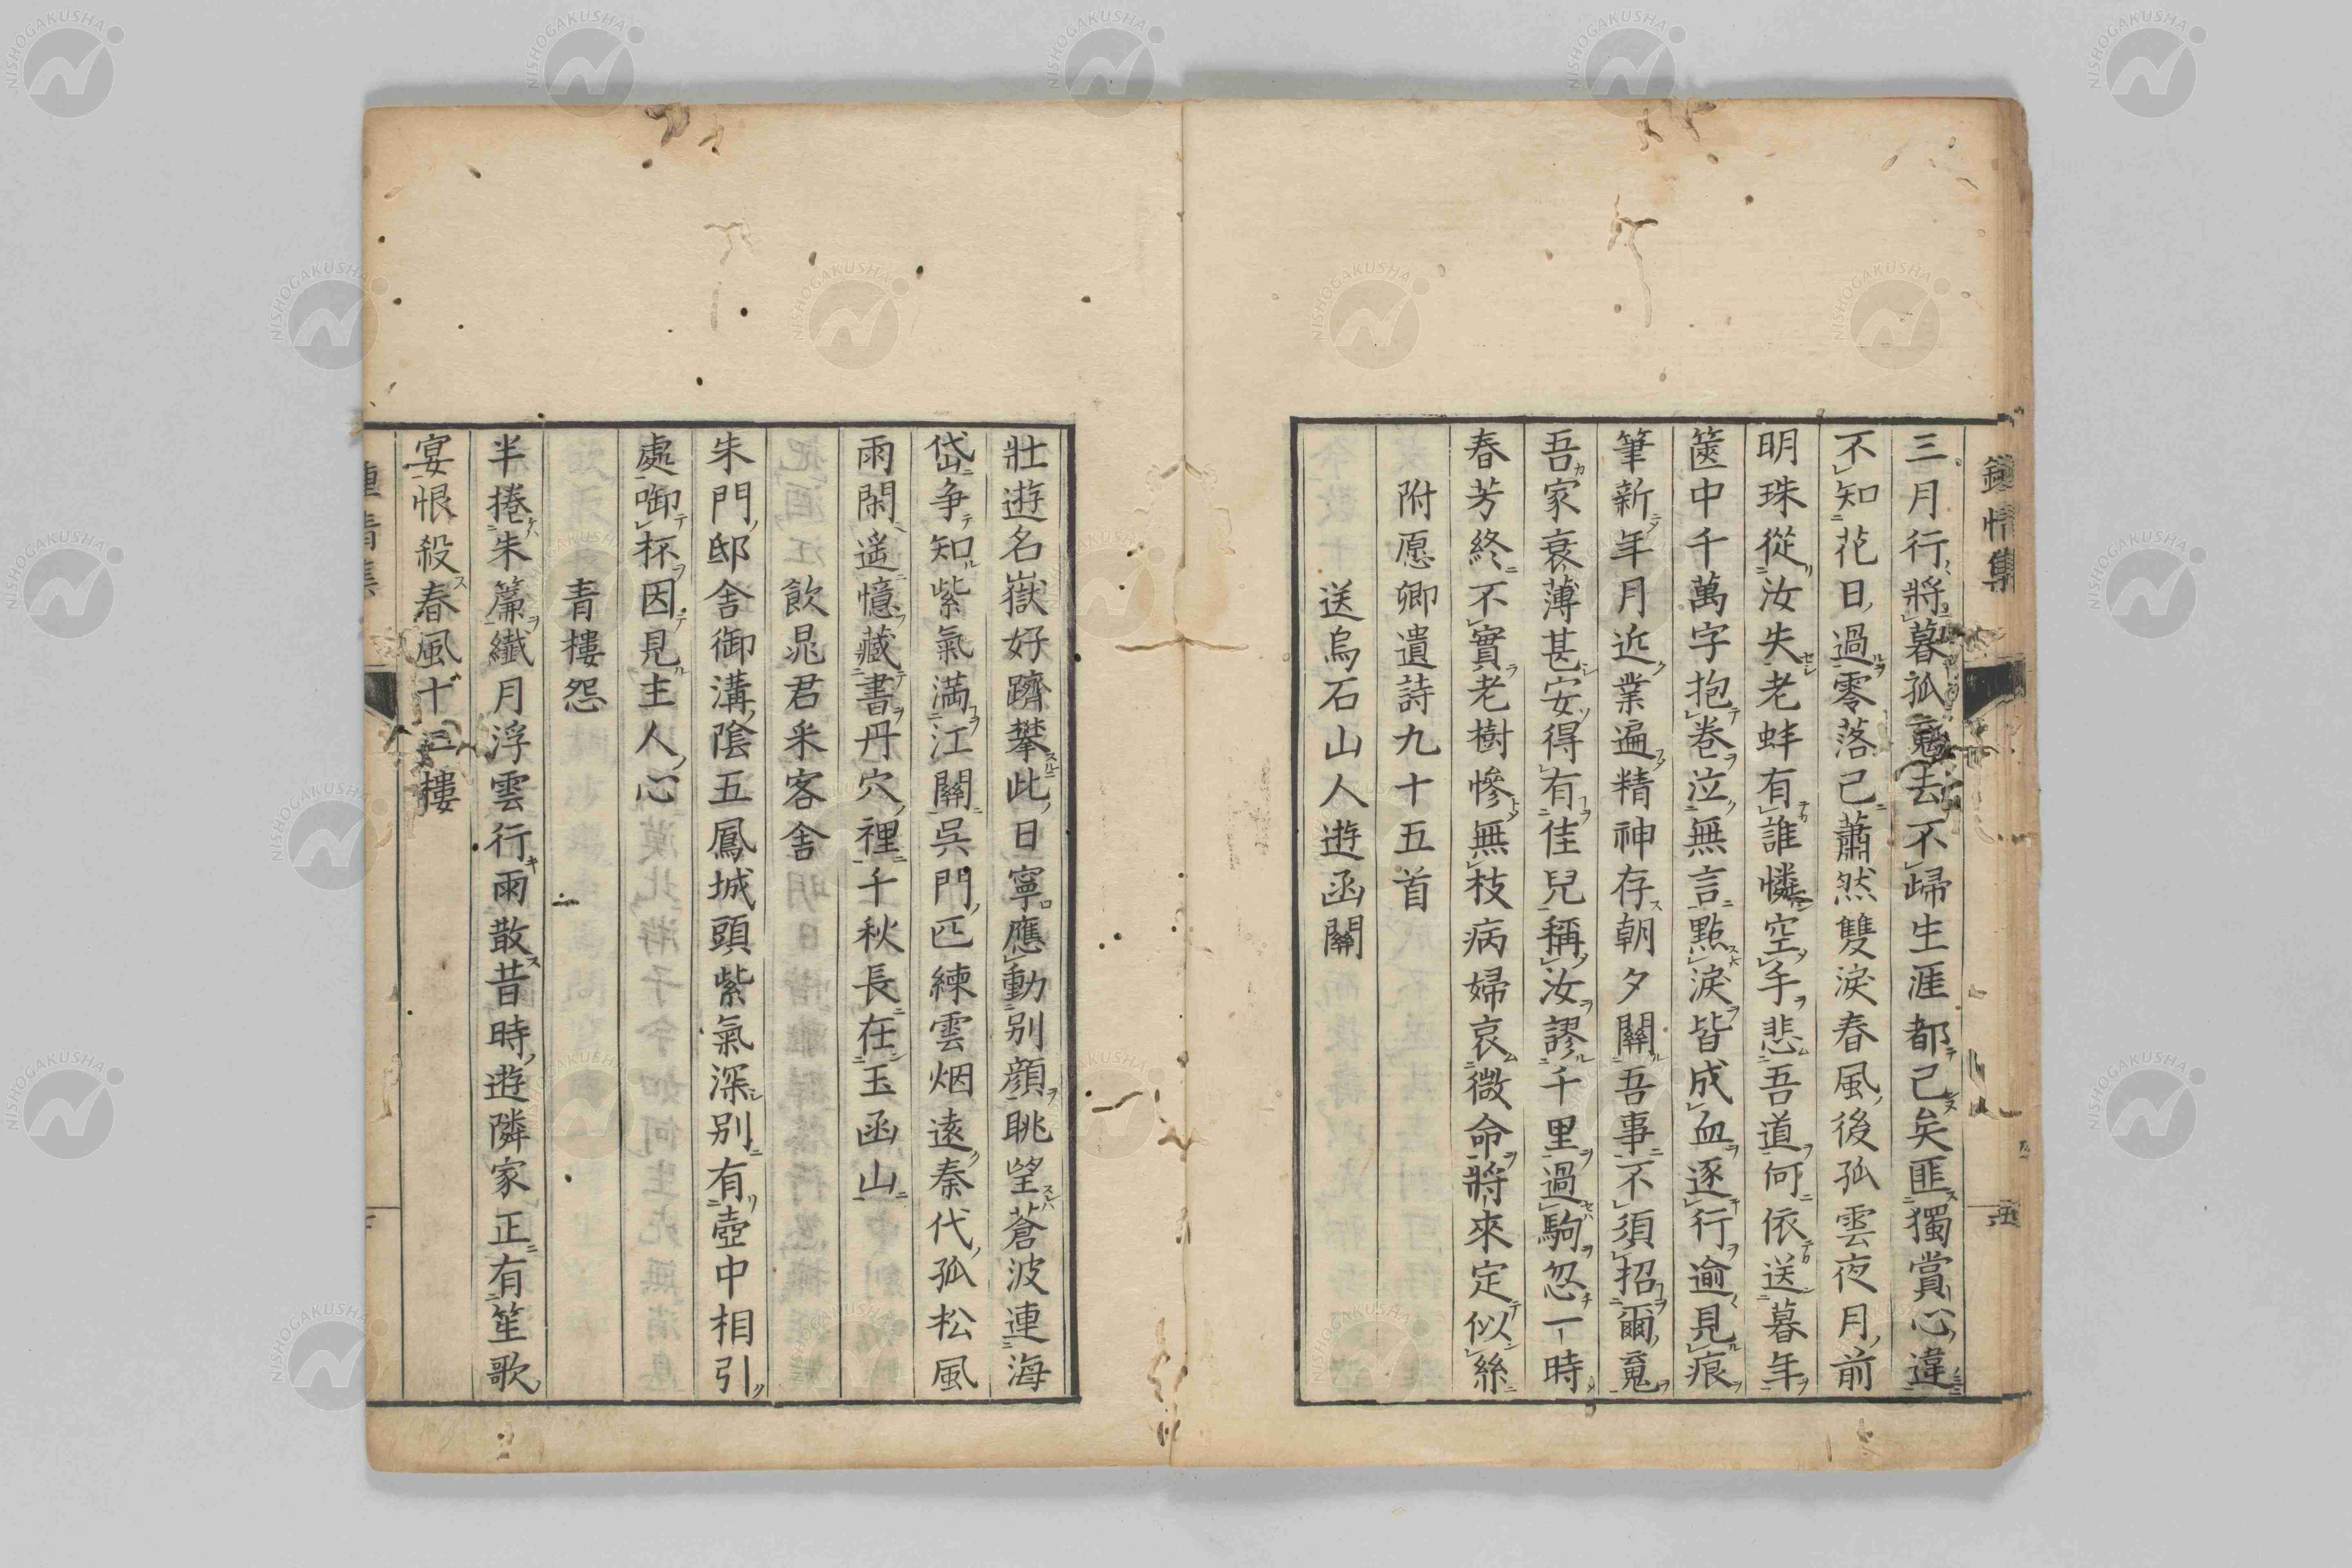 鍾情集
三月行將暮孤䰟去不歸生涯都已矣匪獨賞心違
不知花日過零落已蕭然雙淚春風後孤雲夜月前
明珠從汝失老蚌有誰憐空手悲吾道何依送暮年
篋中千萬字抱卷泣無言點淚皆成血逐行逾見痕
筆新年月近業遍精神存朝夕關吾事不須招爾䰟
吾家衰薄甚安得有佳兒稱汝謬千里過駒忽一時
春芳終不實老樹慘無枝病婦哀微命將來定似絲
附愿卿遺詩九十五首
送烏石山人遊函關
五
壯遊名嶽好躋攀此日寧應動別顔眺望蒼波連海
岱爭知紫氣滿江關吳門匹練雲烟遠秦代孤松風
雨閑遥憶藏書丹穴裡千秋長在玉函山
飲晁君釆客舍
朱門邸舍御溝陰五鳳城頭紫氣深別有壺中相引
處啣杯因見主人心
青樓怨
半捲朱簾纖月浮雲行雨散昔時遊隣家正有笙歌
宴恨殺春風十二樓
鍾情集
NISHOGAKUSHA